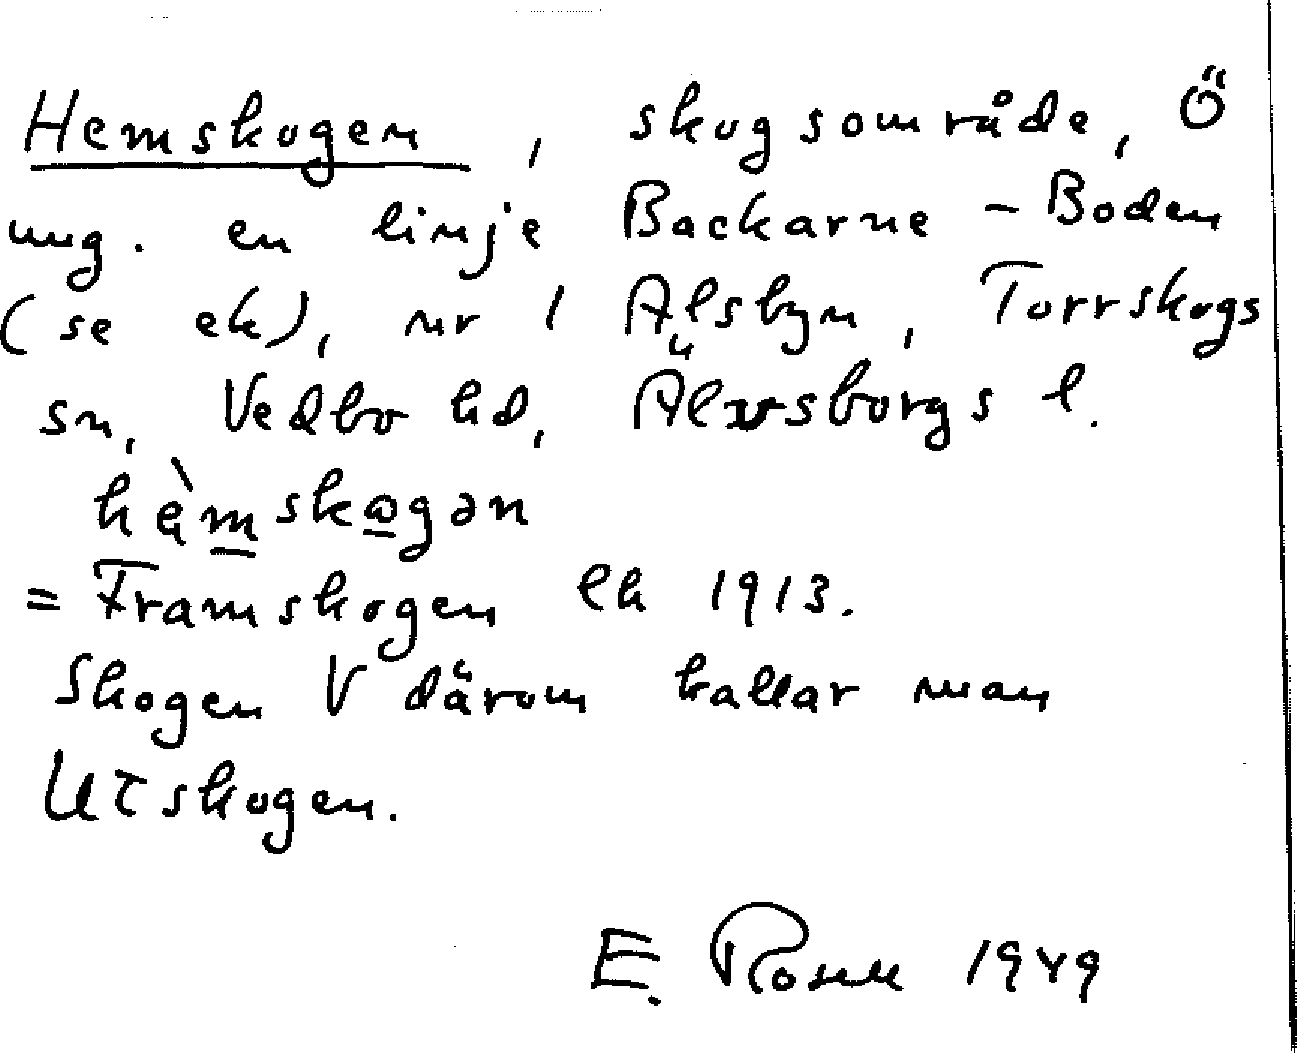 Hemskogen, skogsområde, Ö
ung. en linje Backarne - Boden
(se ek), nr 1 Ålsbyn, Torrskogs
sn, Vedbo hd, Älvsborgs l.
hèmskogən
= Framskogen Ek 1913.
Skogen V därom kallar man
Utskogen.
E. Rosell 1949